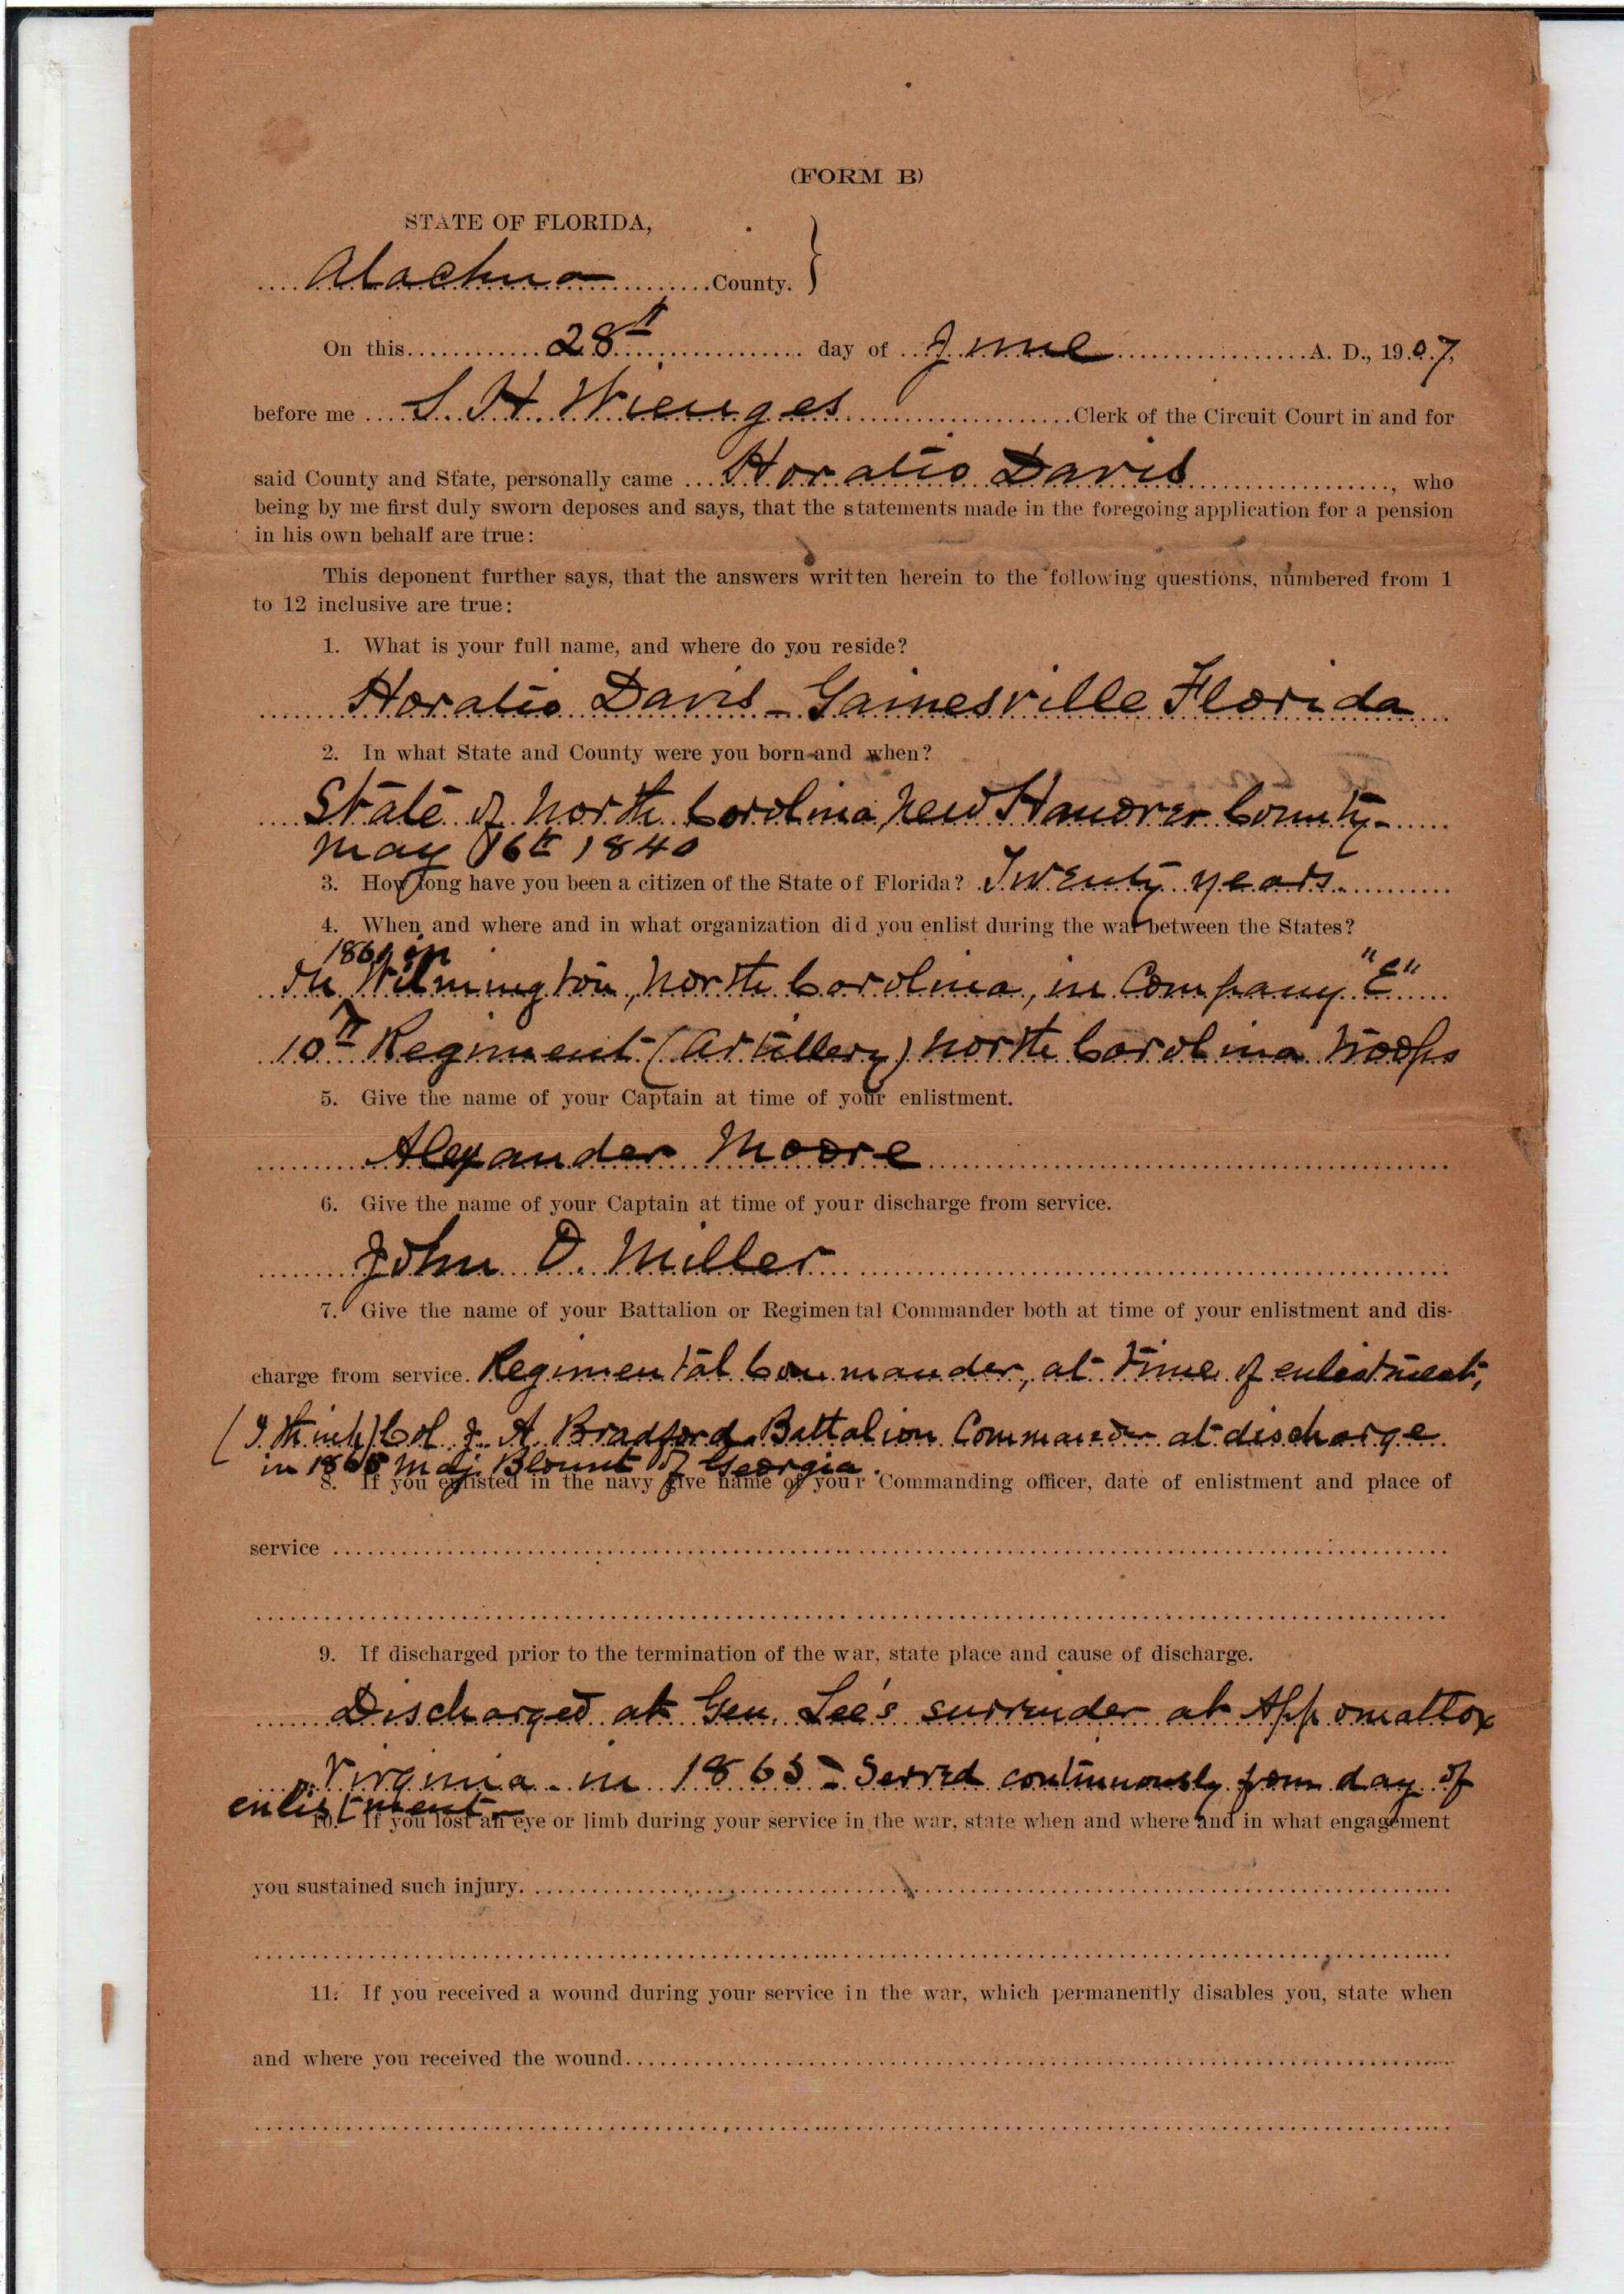 (FORM B)
STATE OF FLORIDA,
Alachua County.
On this 28th day of June A. D., 1907,
before me S. H. Wienges Clerk of the Circuit Court in and for
said County and State, personally came Horatio Davis, who
being by me first duly sworn deposes and says, that the statements made in the foregoing application for a pension
in his own behalf are true:
This deponent further says, that the answers written herein to the following questions, numbered from 1
to 12 inclusive are true:
1. What is your full name, and where do you reside?
Horatio Davis - Gainesville Florida
2. In what State and County were you born and when?
State of North Carolina, New Hanover County -
May 16th 1840
3. How long have you been a citizen of the State of Florida? Twenty years.
4. When and where and in what organization did you enlist during the war between the States?
1861 in
In Wilmington, North Carolina, in Company "E"
10th Regiment (Artillery) North Carolina Troops
5. Give the name of your Captain at time of your enlistment.
Alexander Moore
6. Give the name of your Captain at time of your discharge from service.
John O. Miller
7. Give the name of your Battalion or Regimental Commander both at time of your enlistment and dis-
charge from service. Regimental Commander, at time of enlistment,
(I think) Col. J. A. Bradford. Battalion Commander at discharge
in 1865 Maj. Blount of Georgia.
8. If you enlisted in the navy give name of your Commanding officer, date of enlistment and place of
service
9. If discharged prior to the termination of the war, state place and cause of discharge.
Discharged at Gen. Lee's surrender at Appomattox
Virginia in 1865 - Served continuously from day of
enlistment -
10. If you lost an eye or limb during your service in the war, state when and where and in what engagement
you sustained such injury.
11. If you received a wound during your service in the war, which permanently disables you, state when
and where you received the wound